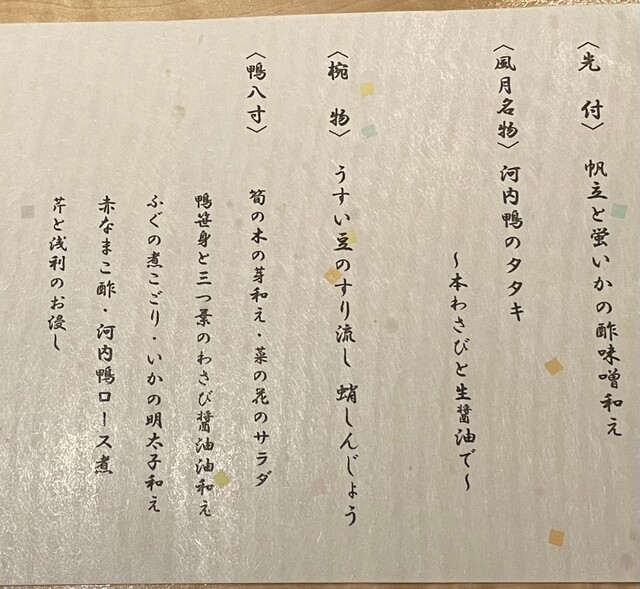 〈先　付〉 帆立と蛍いかの酢味噌和え
〈風月名物〉 河内鴨のタタキ
～本わさびと生醤油で～
〈椀　物〉 うすい豆のすり流し 蛸しんじょう
〈鴨八寸〉 筍の木の芽和え・菜の花のサラダ
鴨笹身と三つ葉のわさび醤油油和え
ふぐの煮こごり・いかの明太子和え
赤なまこ酢・河内鴨ロース煮
芹と浅利のお浸し